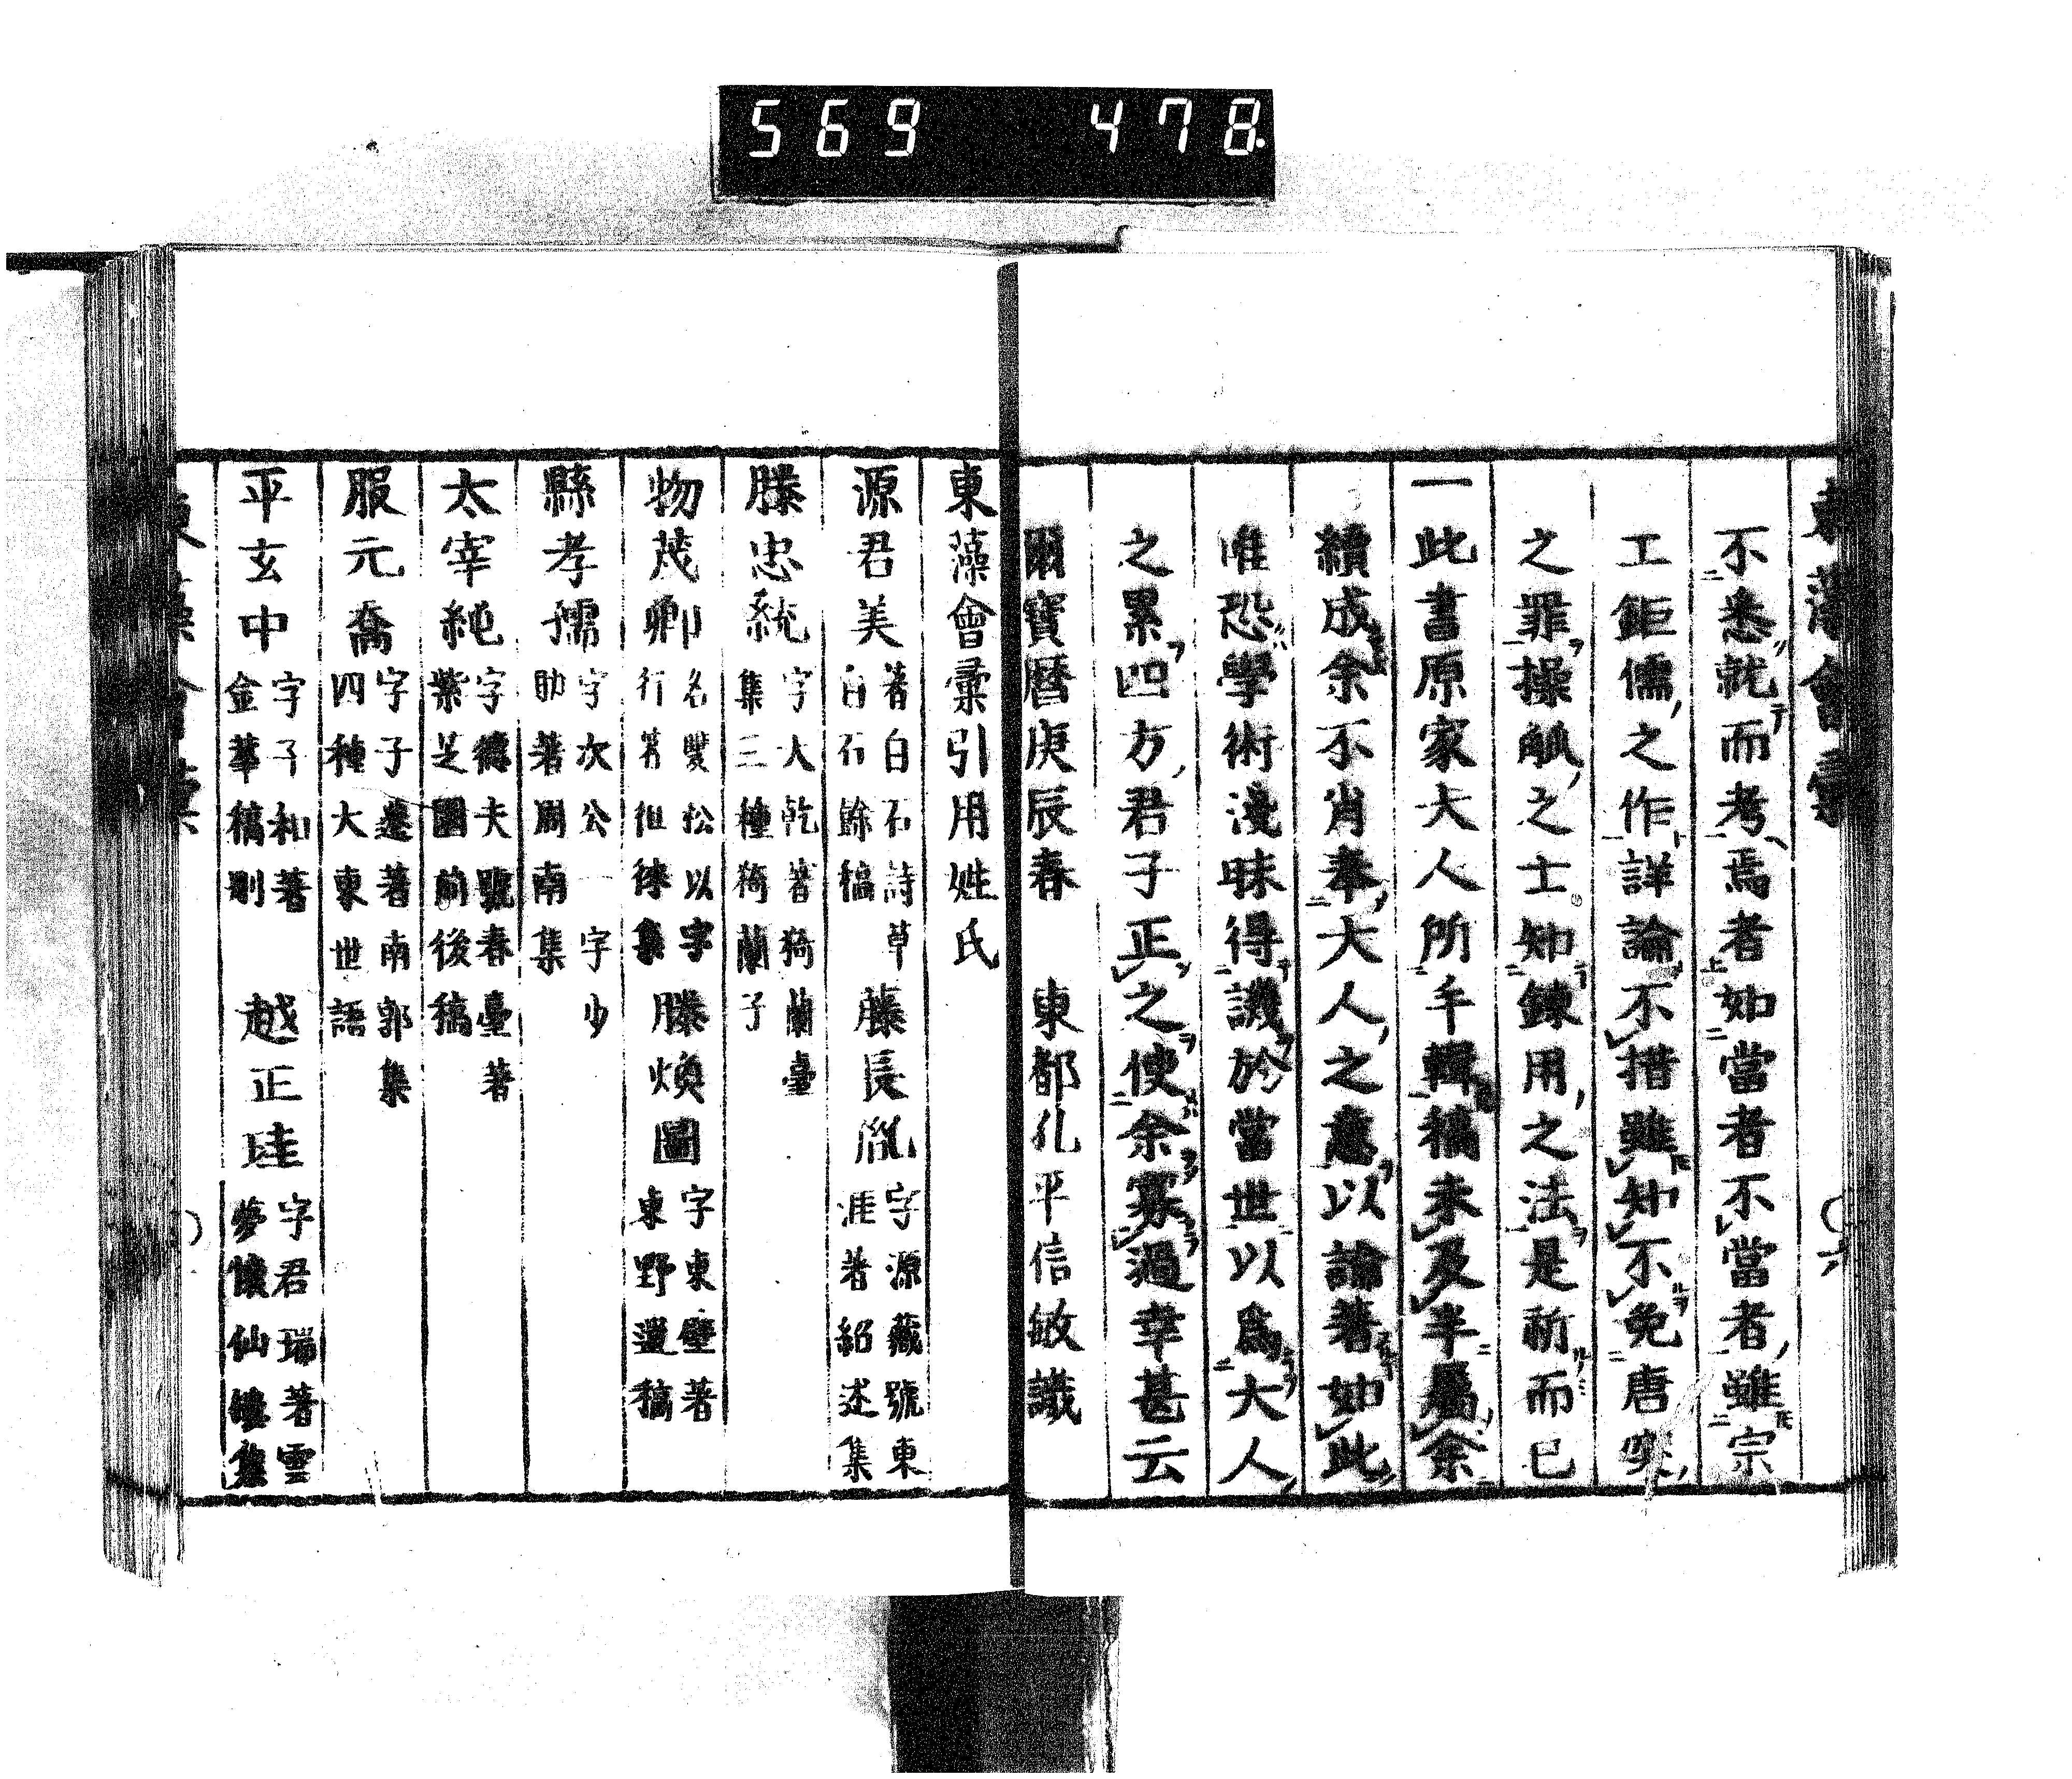 569 478.
東藻會彙
不悉就而考焉者如當者不當者雖宗
工鉅儒之作詳論不措雖知不免唐突
之罪操觚之士知鍊用之法是祈而已
一此書原家大人所手輯稿未及半屬余
續成余不肖奉大人之意以論著如此
唯恐學術淺昧得譏於當世以爲大人
之累四方君子正之使余寡過幸甚云
爾寶曆庚辰春 東都孔平信敏識
東藻會彙引用姓氏
源君美 著白石詩草白石餘稿 藤長胤 字源藏號東涯著紹述集
滕忠統 字大乾著猗蘭臺集三種猗蘭子
物茂卿 名雙松以字行著徂徠集 滕煥圖 字東壁著東野遺稿
縣孝孺 字次公一字少助著周南集
太宰純 字德夫號春臺著紫芝園前後稿
服元喬 字子遷著南郭集四種大東世語
平玄中 字子和著金華稿刪 越正珪 字君瑞著雲夢懷仙樓集